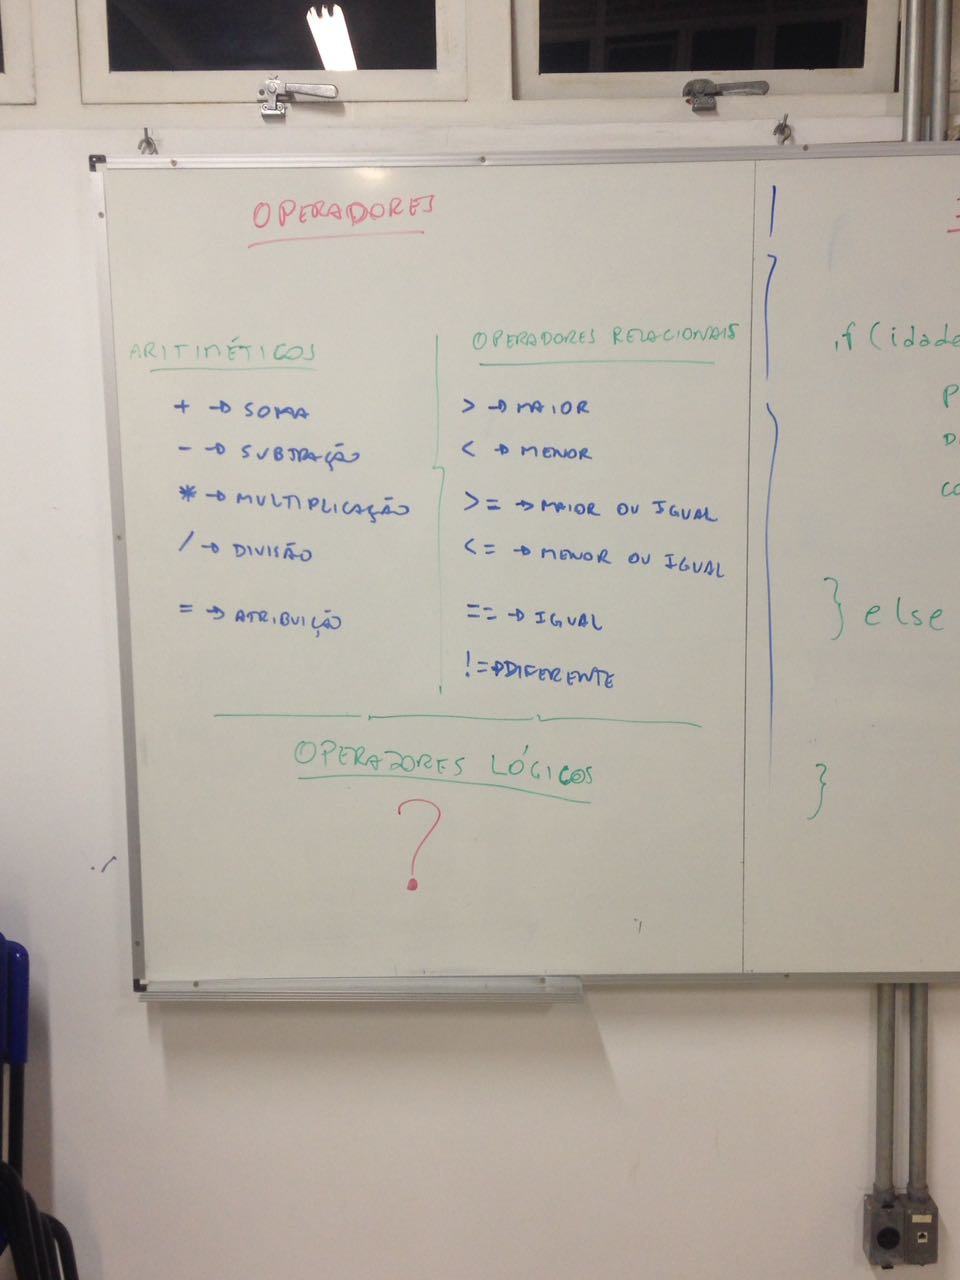 OPERADORES
ARITIMÉTICOS
+ → SOMA
- → SUBTRAÇÃO
* → MULTIPLICAÇÃO
/ → DIVISÃO
= → ATRIBUIÇÃO
OPERADORES RELACIONAIS
> → MAIOR
< → MENOR
>= → MAIOR OU IGUAL
<= → MENOR OU IGUAL
== → IGUAL
!= → DIFERENTE
OPERADORES LÓGICOS
?
if (idade
} else
}